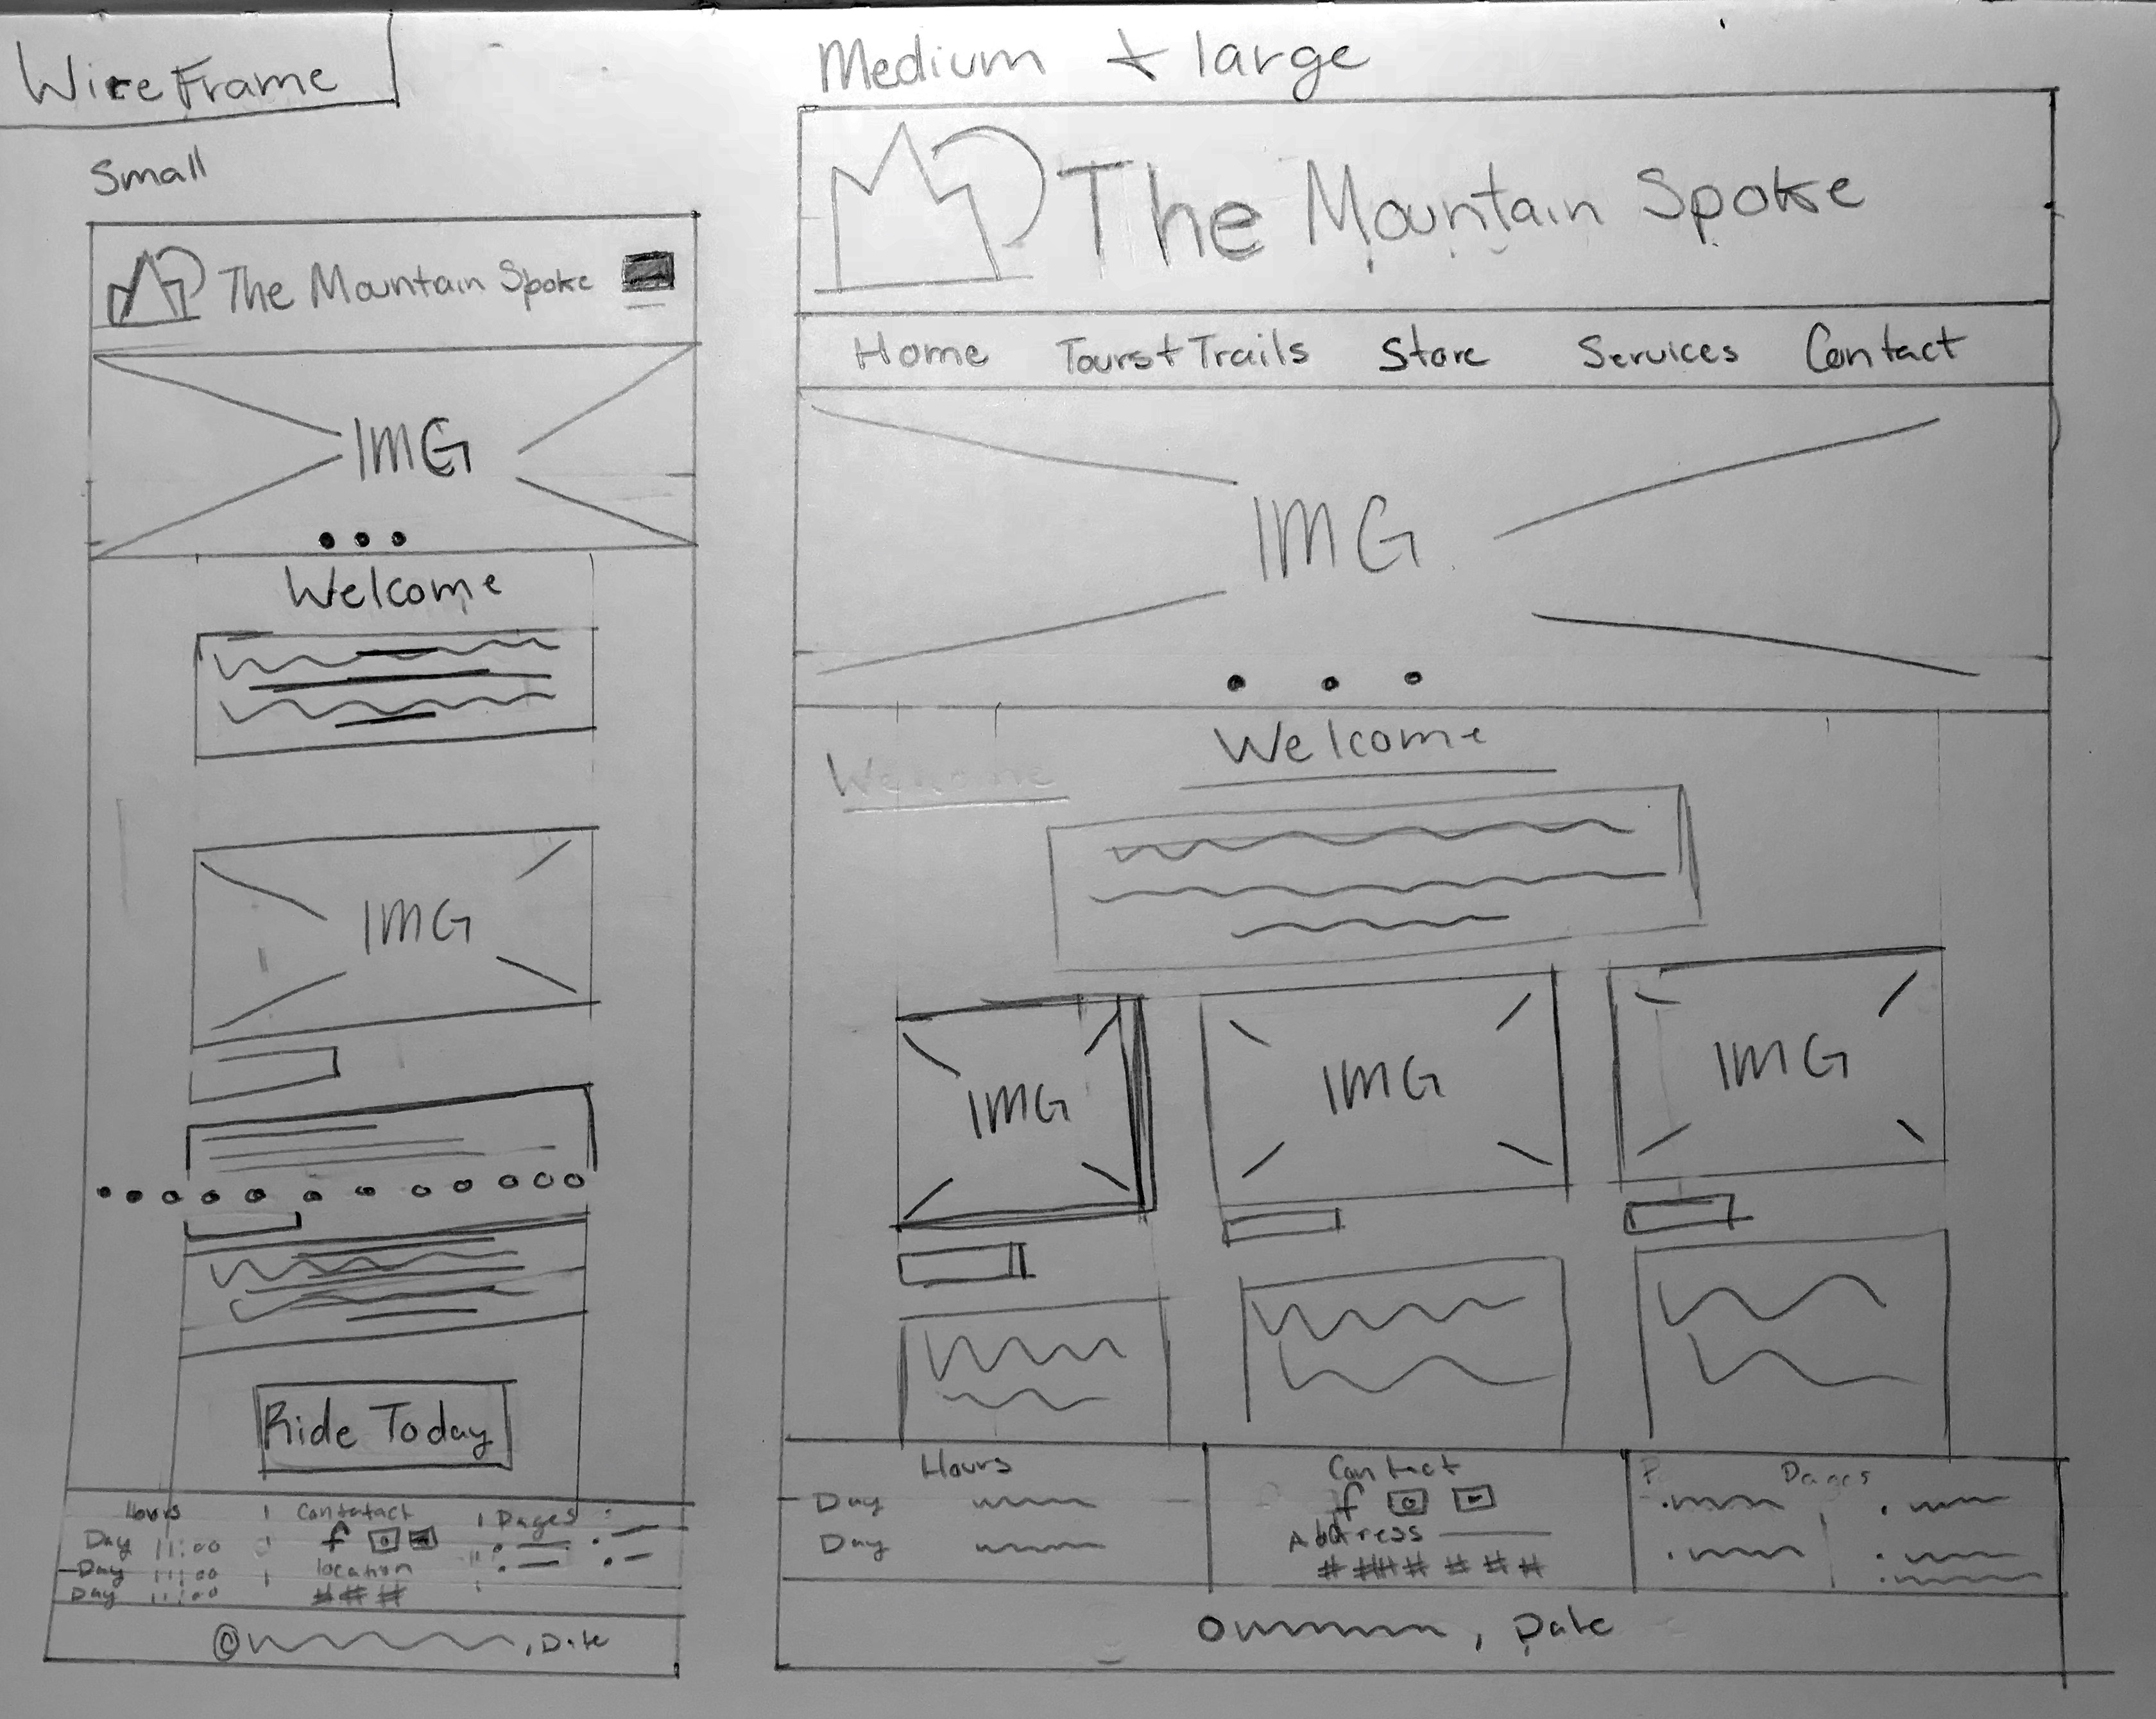 WireFrame
Small
The Mountain Spoke
IMG
Welcome
IMG
Ride Today
Hours
Day 11:00
Day 11:00
Day 11:00
Contatact
f
location
# # #
Pages
@ , Date
Medium + large
The Mountain Spoke
Home Tours + Trails Store Services Contact
IMG
Welcome
Welcome
IMG IMG IMG
Hours
Day
Day
Contact
f
Address
# ## # # # #
P Pages
, Date